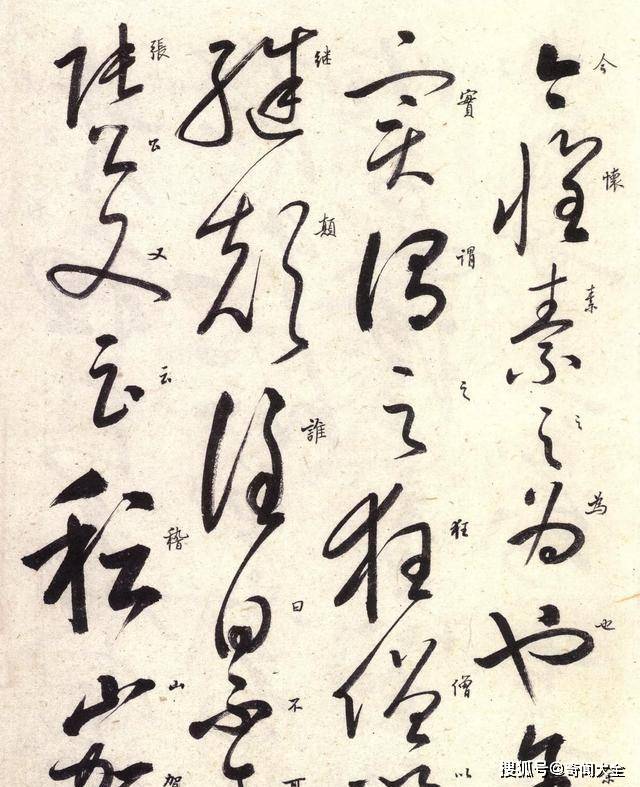 今懷素之為也
實謂之狂僧以
继顛誰曰不可
張公又云稽山賀
搜狐号@奇闻大全